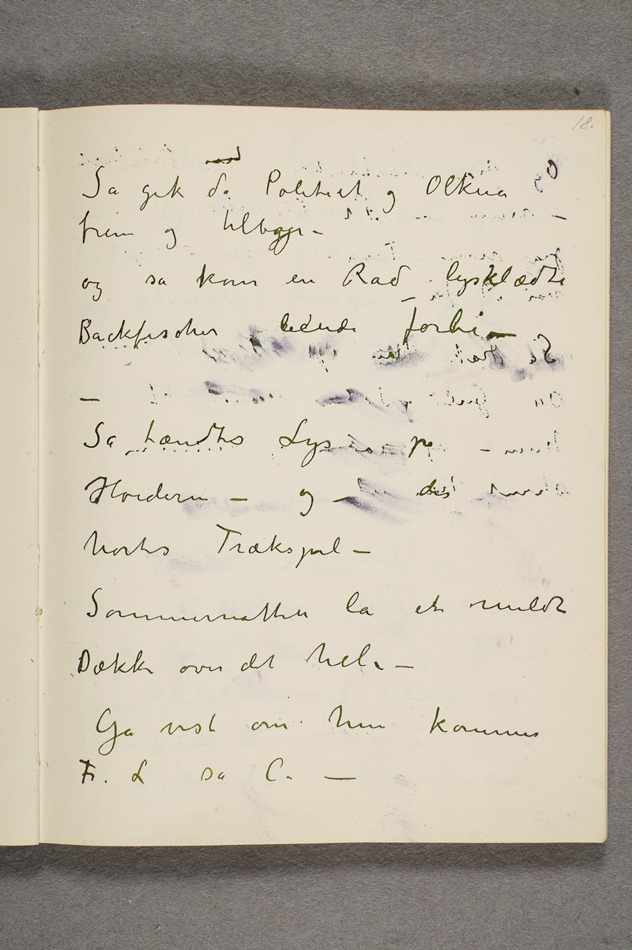 18.
Sa gik da Politist og Olkua
frem og tilbage –
og sa kom en Rad lysklædte
Backfischer leende forbi –
–
Sa tændtes Lys pa
Hvidern – og – der
hortes Trækspil –
Sommernatten la et mildt
Dække over det hele –
Ga vist om hun kommer
Fr. L sa C. –